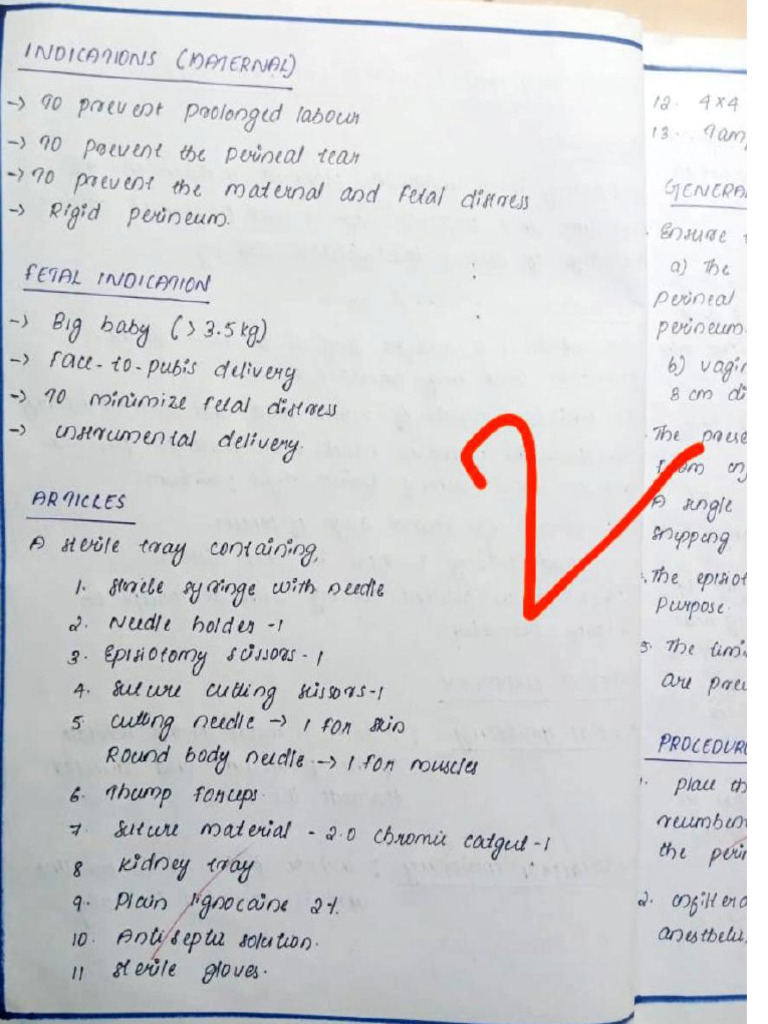 INDICATIONS (MATERNAL)
-> To prevent prolonged labour
-> To prevent the perineal tear
-> To prevent the maternal and fetal distress
-> Rigid perineum.
FETAL INDICATION
-> Big baby (> 3.5 kg)
-> Face-to-pubis delivery
-> To minimize fetal distress
-> instrumental delivery.
ARTICLES
A sterile tray containing,
1. Sterile syringe with needle
2. Needle holder -1
3. Episiotomy scissors -1
4. Suture cutting scissors-1
5 cutting needle -> 1 for skin
Round body needle -> 1 for muscles
6. Thump forceps.
7. Suture material - 2.0 chromic catgut-1
8 kidney tray
9. Plain lignocaine 2%
10. Antiseptic solution.
11 sterile gloves.
2
12. 4x4
13.
GENERA
Ensure
a) The
perineal
perineum.
b) vagin
8 cm di
The prese
from
A single
snipping
The episiot
purpose.
5. The
are prev
PROCEDUR
1. place th
recumben
the peri
2.
anesthe